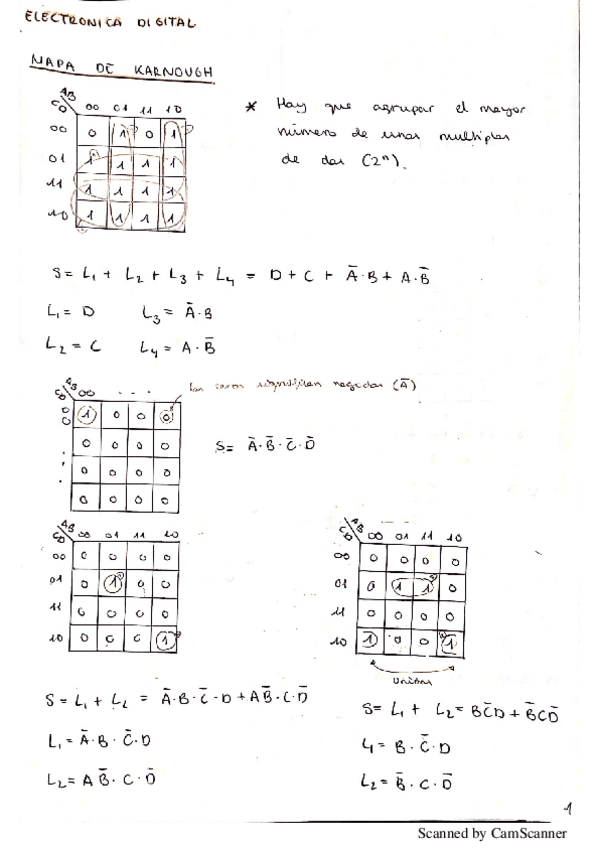 ELECTRONICA DIGITAL
MAPA DE KARNOUGH
AB
CD 00 01 11 10
00 0 1 0 1
01 1 1 1 1
11 1 1 1 1
10 1 1 1 1
* Hay que agrupar el mayor
número de unos multiplos
de dos (2ⁿ).
S= L₁ + L₂ + L₃ + L₄ = D + C + Ā·B + A·B̄
L₁= D L₃= Ā·B
L₂= C L₄= A·B̄
AB
CD 00 . . .
00 1 0 0 0
. 0 0 0 0
. 0 0 0 0
. 0 0 0 0
Los ceros significan negados (Ā)
S= Ā·B̄·C̄·D̄
AB
CD 00 01 11 10
00 0 0 0 0
01 0 1 0 0
11 0 0 0 0
10 0 0 0 1
AB
CD 00 01 11 10
00 0 0 0 0
01 0 1 1 0
11 0 0 0 0
10 1 0 0 1
unidas
S= L₁ + L₂ = Ā·B·C̄·D + AB̄·C·D̄
L₁= Ā·B·C̄·D
L₂= A B̄·C·D̄
S= L₁ + L₂= BC̄D + B̄CD̄
L₁= B·C̄·D
L₂= B̄·C·D̄
1
Scanned by CamScanner